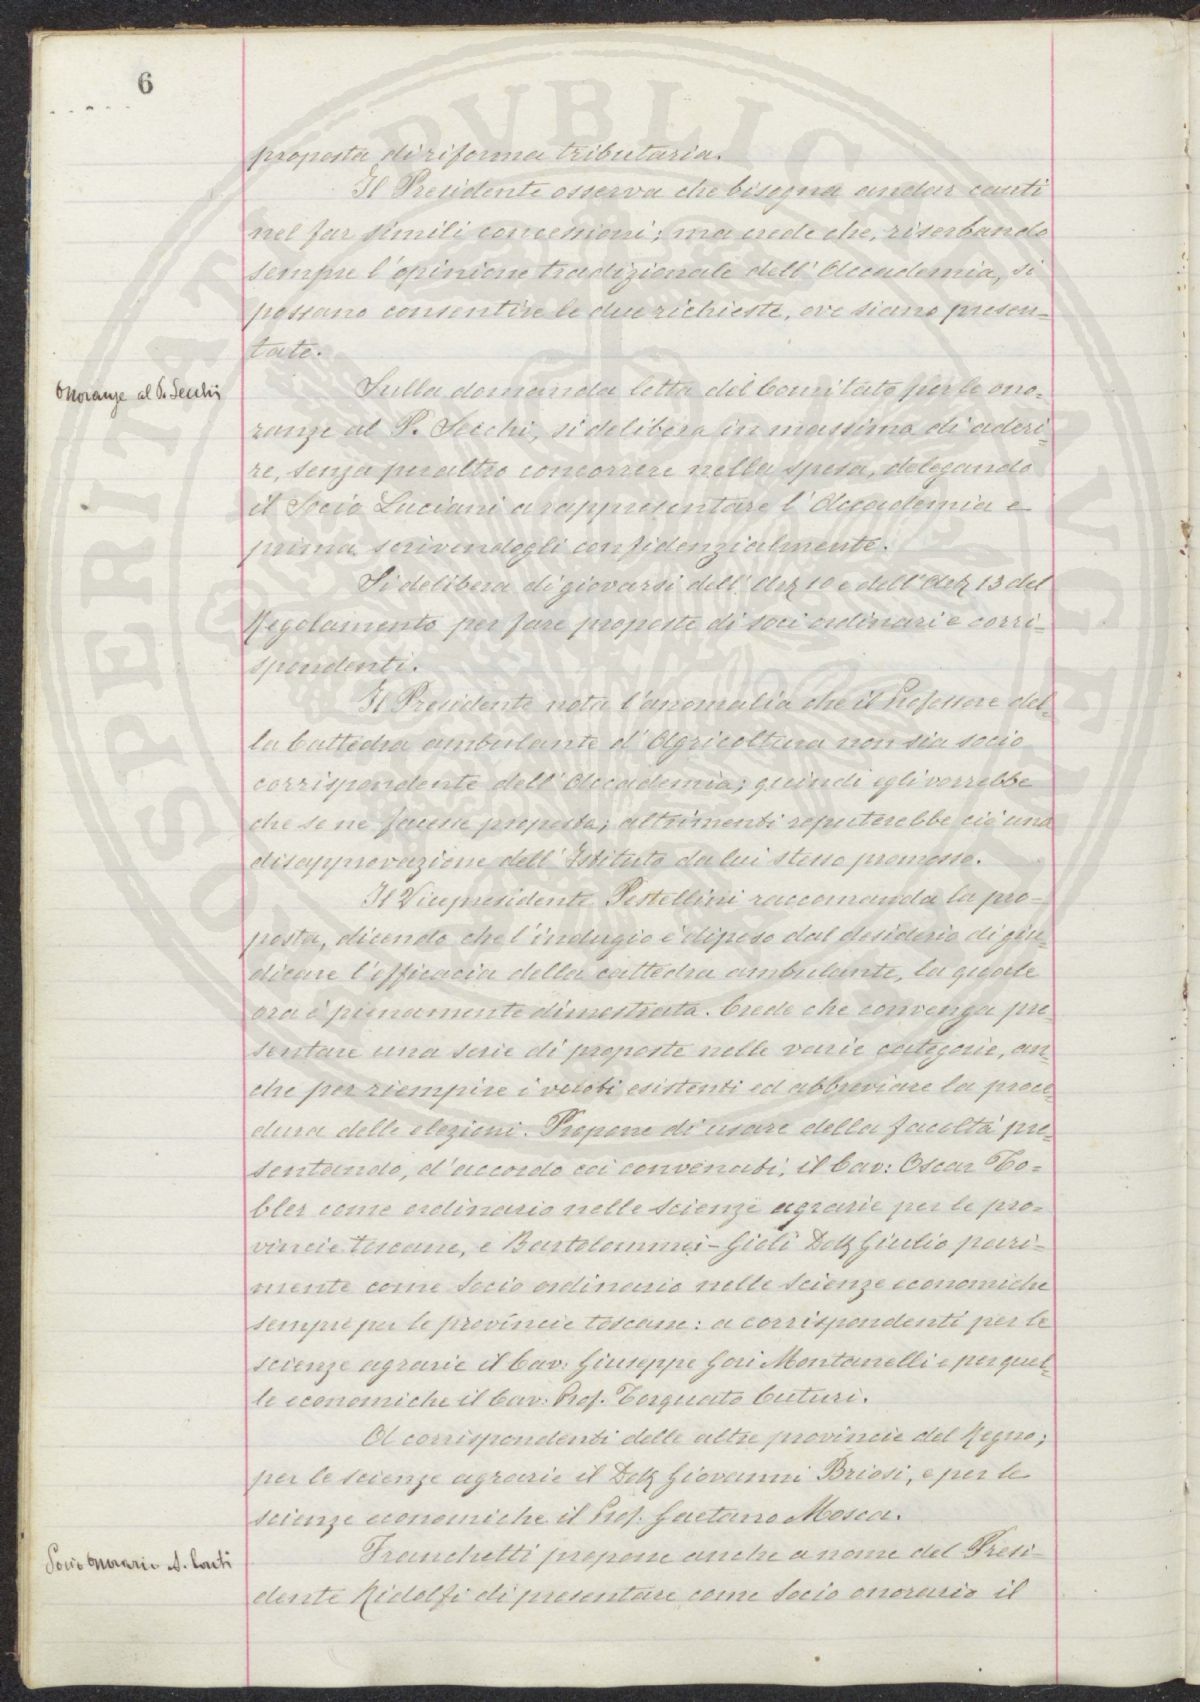 6
proposta di riforma tributaria.
Il Presidente osserva che bisogna andar cauti
nel far simili concessioni; ma crede che, riserbando
sempre l'opinione tradizionale dell'Accademia, si
possano consentire le due richieste, ove siano presen-
tate.
Onoranze al P. Secchi
Sulla domanda letta del Comitato per le ono-
ranze al P. Secchi, si delibera in massima di aderi-
re, senza peraltro concorrere nella spesa, delegando
il Socio Luciani a rappresentare l'Accademia e
prima scrivendogli confidenzialmente.
Si delibera di giovarsi dell'Art 10 e dell'Art 13 del
Regolamento per fare proposte di soci ordinari e corri-
spondenti.
Il Presidente nota l'anomalia che il Professore del-
la Cattedra ambulante d'Agricoltura non sia socio
corrispondente dell'Accademia; quindi egli vorrebbe
che se ne facesse proposta; altrimenti reputerebbe ciò una
disapprovazione dell'Istituto da lui stesso promosso.
Il Vicepresidente Pestellini raccomanda la pro-
posta, dicendo che l'indugio è dipeso dal desiderio di giu-
dicare l'efficacia della cattedra ambulante, la quale
ora è pienamente dimostrata. Crede che convenga pre-
sentare una serie di proposte nelle varie categorie, an-
che per riempire i vuoti esistenti ed abbreviare la proce-
dura delle elezioni. Propone di usare della facoltà pre-
sentando, d'accordo coi convenuti, il Cav: Oscar To-
bler come ordinario nelle scienze agrarie per le pro-
vincie toscane, e Bartolommei-Gioli Dott Giulio pari-
mente come Socio ordinario nelle scienze economiche
sempre per le provincie toscane: a corrispondenti per le
scienze agrarie il Cav: Giuseppe Gori Montanelli e per quel-
le economiche il Cav: Prof. Torquato Cuturi.
A corrispondenti delle altre provincie del Regno;
per le scienze agrarie il Dott Giovanni Briosi, e per le
scienze economiche il Prof. Gaetano Mosca.
Socio onorario A. Conti
Franchetti propone anche a nome del Presi-
dente Ridolfi di presentare come Socio onorario il